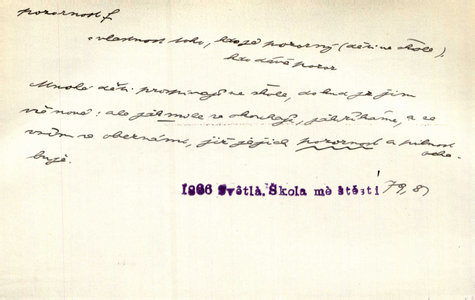 pozornost f.
vlastnost toho, kdo je pozorný (děti ve škole),
kdo dává pozor
Mnohé děti prospívají ve škole, dokud je jim
vše nové: ale jakmile se okoukají, jak říkáme, a se
vším se obeznámí, již jejich pozornost a pilnost ocha-
buje.
1906 Světlá. Škola mé štěstí 79,8)